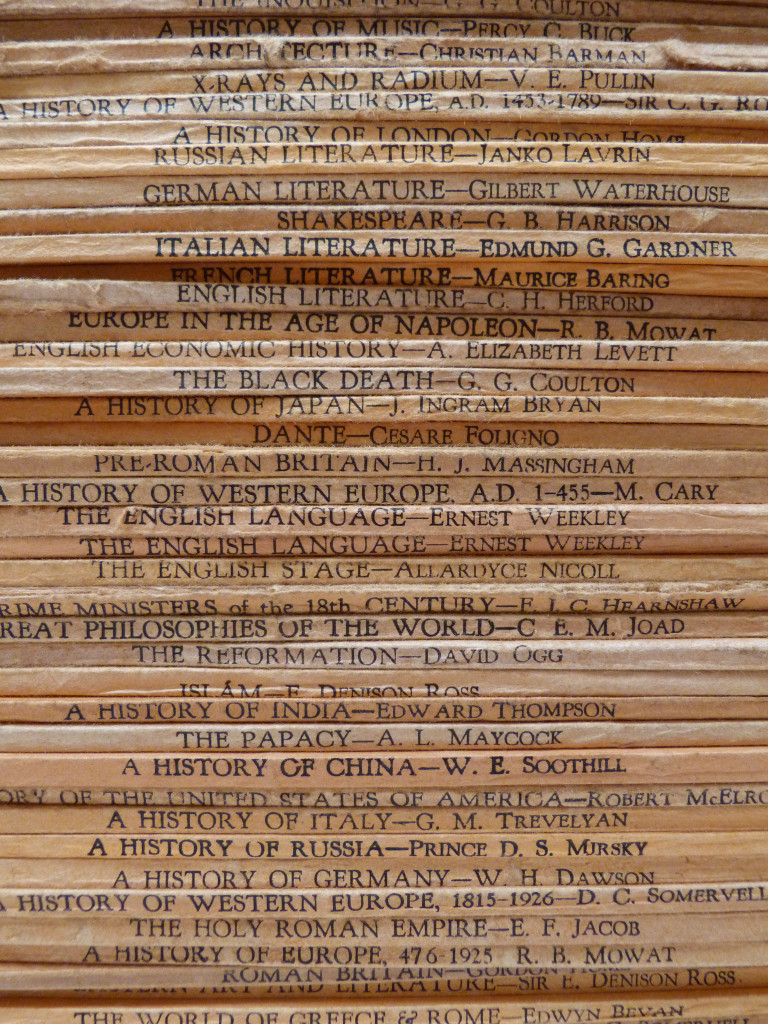 THE INQUISITION—G. G. COULTON
A HISTORY OF MUSIC—PERCY C. BUCK
ARCHITECTURE—CHRISTIAN BARMAN
X-RAYS AND RADIUM—V. E. PULLIN
A HISTORY OF WESTERN EUROPE, A.D. 1453-1789—SIR C. G. RO
A HISTORY OF LONDON—GORDON HOME
RUSSIAN LITERATURE—JANKO LAVRIN
GERMAN LITERATURE—GILBERT WATERHOUSE
SHAKESPEARE—G. B. HARRISON
ITALIAN LITERATURE—EDMUND G. GARDNER
FRENCH LITERATURE—MAURICE BARING
ENGLISH LITERATURE—C. H. HERFORD
EUROPE IN THE AGE OF NAPOLEON—R. B. MOWAT
ENGLISH ECONOMIC HISTORY—A. ELIZABETH LEVETT
THE BLACK DEATH—G. G. COULTON
A HISTORY OF JAPAN—J. INGRAM BRYAN
DANTE—CESARE FOLIGNO
PRE-ROMAN BRITAIN—H. J. MASSINGHAM
A HISTORY OF WESTERN EUROPE, A.D. 1-455—M. CARY
THE ENGLISH LANGUAGE—ERNEST WEEKLEY
THE ENGLISH LANGUAGE—ERNEST WEEKLEY
THE ENGLISH STAGE—ALLARDYCE NICOLL
RIME MINISTERS of the 18th CENTURY—F. J. C. HEARNSHAW
REAT PHILOSOPHIES OF THE WORLD—C. E. M. JOAD
THE REFORMATION—DAVID OGG
ISLÁM—E. DENISON ROSS
A HISTORY OF INDIA—EDWARD THOMPSON
THE PAPACY—A. L. MAYCOCK
A HISTORY OF CHINA—W. E. SOOTHILL
ORY OF THE UNITED STATES OF AMERICA—ROBERT MCELRO
A HISTORY OF ITALY—G. M. TREVELYAN
A HISTORY OF RUSSIA—PRINCE D. S. MIRSKY
A HISTORY OF GERMANY—W. H. DAWSON
A HISTORY OF WESTERN EUROPE, 1815-1926—D. C. SOMERVELL
THE HOLY ROMAN EMPIRE—E. F. JACOB
A HISTORY OF EUROPE, 476-1925 R. B. MOWAT
ROMAN BRITAIN—GORDON HOME
EASTERN ART AND LITERATURE—SIR E. DENISON ROSS
THE WORLD OF GREECE & ROME—EDWYN BEVAN